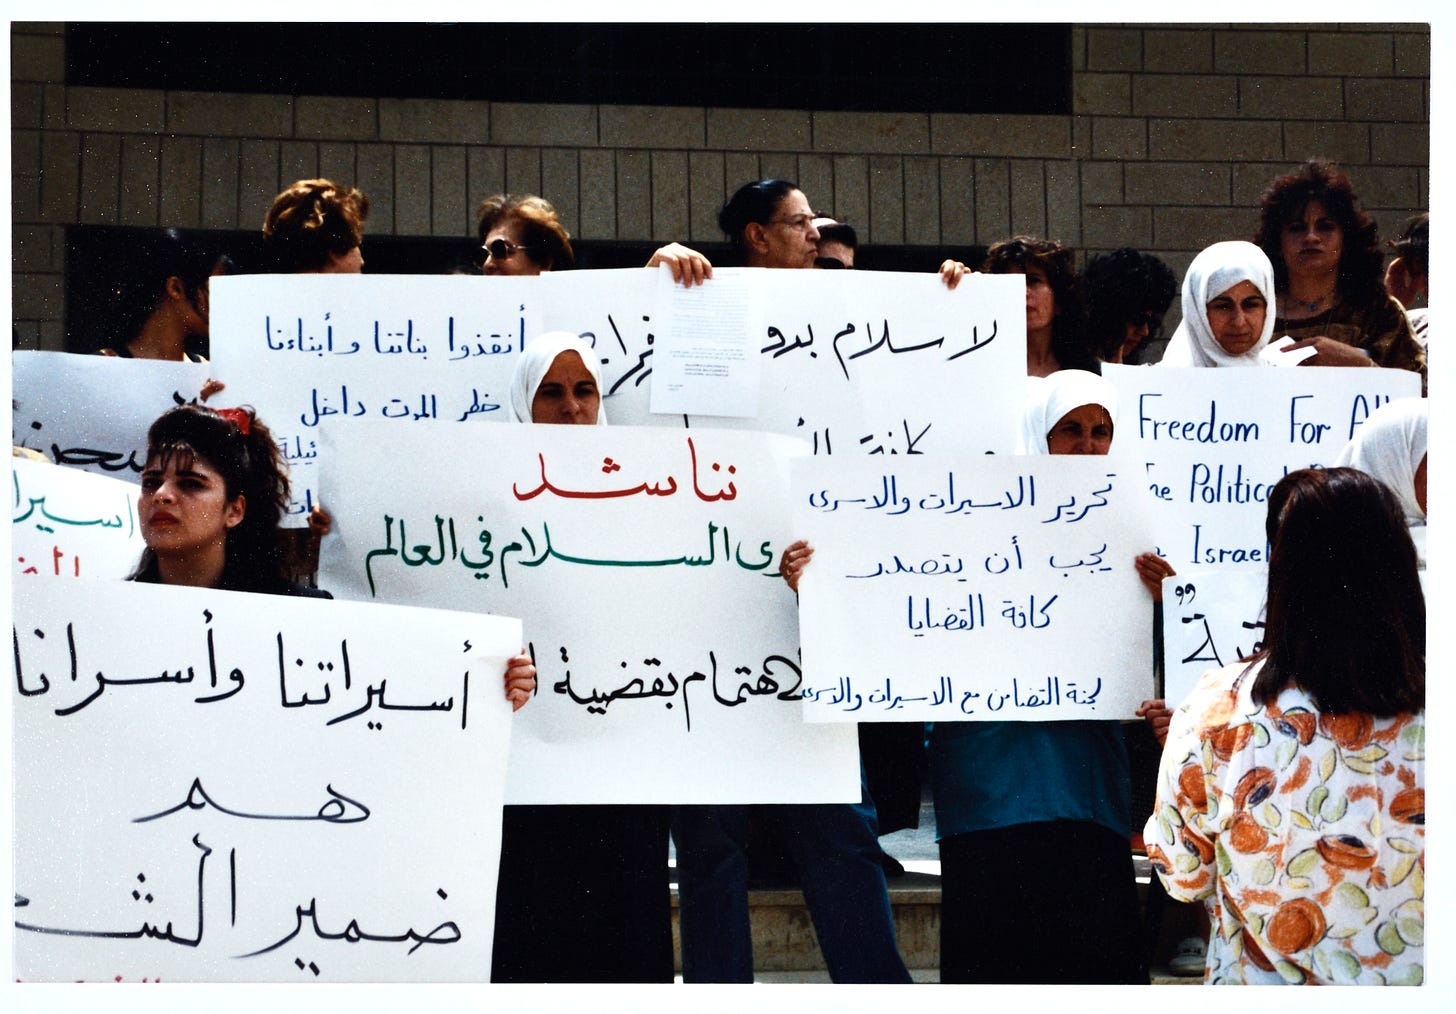 أنقذوا بناتنا وأبناءنا
خطر الموت داخل
لا سلام بدو
كافة
نناشد
السلام في العالم
لاهتمام بقضية
تحرير الاسيرات والاسرى
يجب أن يتصدر
كافة القضايا
لجنة التضامن مع الاسيرات والاسرى
Freedom For
Political
Israel
أسيراتنا وأسرانا
هم
ضمير الشـ